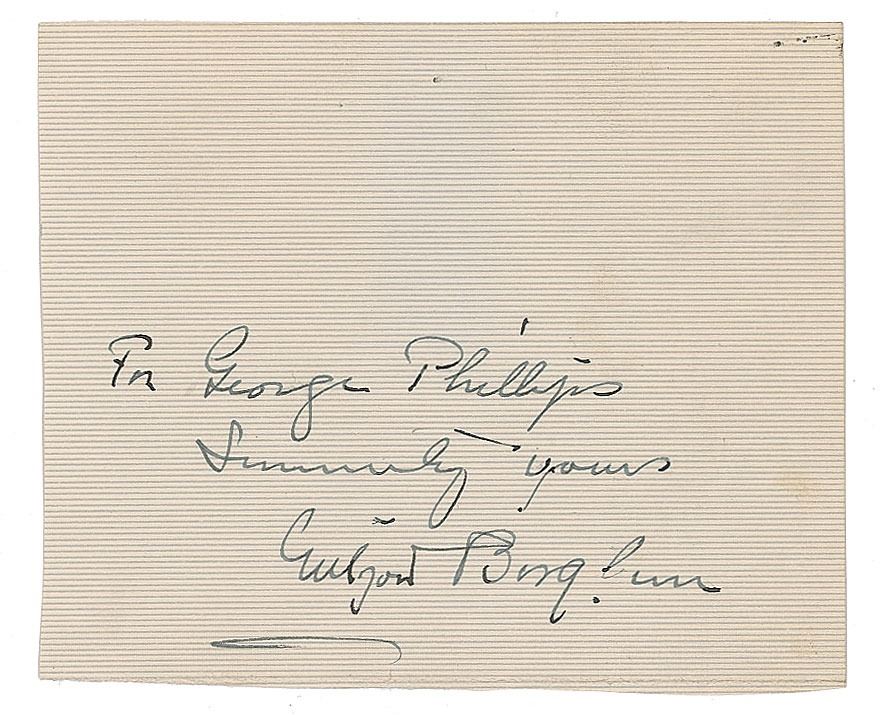 For George Phillips
Sincerely yours
Gutzon Borglum